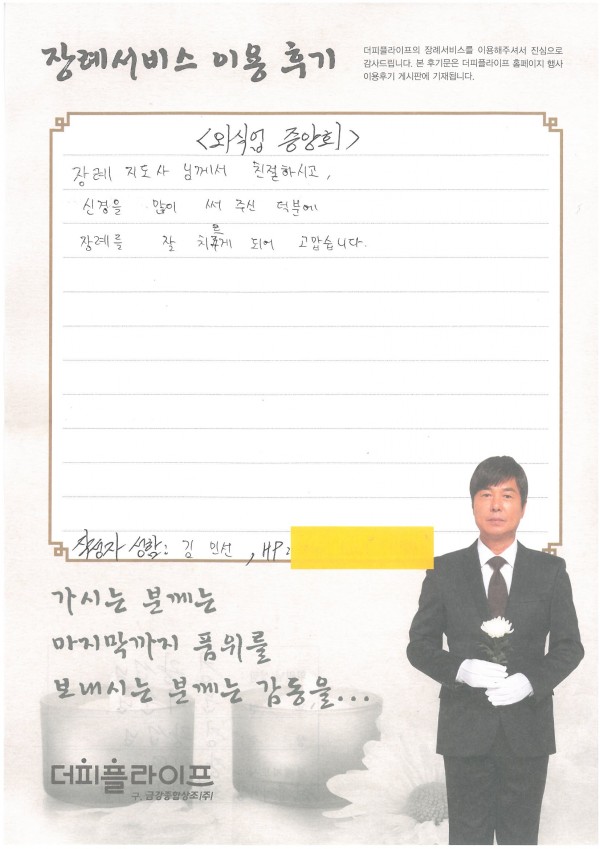 장례서비스 이용 후기
더피플라이프의 장례서비스를 이용해주셔서 진심으로
감사드립니다. 본 후기문은 더피플라이프 홈페이지 행사
이용후기 게시판에 기재됩니다.
<외식업 중앙회>
장례 지도사 님께서 친절하시고,
신경을 많이 써 주신 덕분에
장례를 잘 치르게 되어 고맙습니다.
작성자 성함: 김인선, HP:
가시는 분께는
마지막까지 품위를
보내시는 분께는 감동을...
더피플라이프
구. 금강종합상조(주)